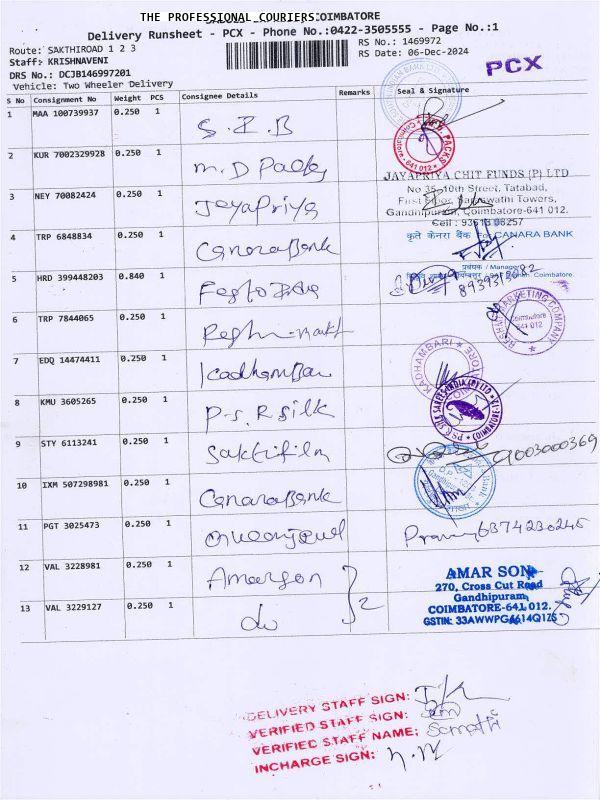 THE PROFESSIONAL COURIERS COIMBATORE
Delivery Runsheet - PCX - Phone No.:0422-3505555 - Page No.:1
Route: SAKTHIROAD 1 2 3
RS No.: 1469972
Staff: KRISHNAVENI
RS Date: 06-Dec-2024
DRS No.: DCJB146997201
Vehicle: Two Wheeler Delivery
PCX
S No Consignment No Weight PCS Consignee Details Remarks Seal & Signature
1 MAA 100739937 0.250 1 S.I.B
2 KUR 7002329928 0.250 1 M.D Packs
PACKS
Coimbatore - 641 012
JAYAPRIYA CHIT FUNDS (P) LTD
3 NEY 70082424 0.250 1 JayaPriya
No 35, 10th Street, Tatabad,
First Floor, Saraswathi Towers,
Gandhipuram, Coimbatore-641 012.
Cell : 93613 08257
4 TRP 6848834 0.250 1 Canara Bank
कृते केनरा बैंक For CANARA BANK
प्रबंधक / Manager
Coimbatore.
5 HRD 399448203 0.840 1
6 TRP 7844065 0.250 1
MARKETING COMPANY
Coimbatore
641 012
7 EDQ 14474411 0.250 1 Kadhambari
KADHAMBARI
8 KMU 3605265 0.250 1 P.S.R Silk
PSR SILK SAREES INDIA (P) LTD
COIMBATORE-12
9 STY 6113241 0.250 1 Saktifilm
9003000369
10 IXM 507298981 0.250 1 Canara Bank
11 PGT 3025473 0.250 1
6374230245
12 VAL 3228981 0.250 1 Amarson
13 VAL 3229127 0.250 1 do
2
AMAR SON
270, Cross Cut Road
Gandhipuram,
COIMBATORE-641 012.
GSTIN: 33AWWPG4614Q1ZS
DELIVERY STAFF SIGN:
VERIFIED STAFF SIGN:
VERIFIED STAFF NAME: Sumathi
INCHARGE SIGN: